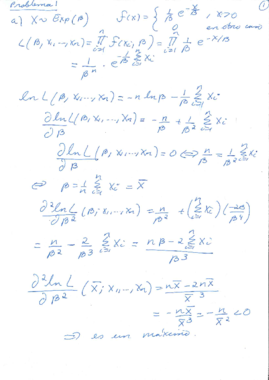 Problema 1
①
a) X ~ Exp(β)   f(x) = { 1/β e^(-x/β), x>0
0   en otro caso
L(β, x₁,...,xₙ) = ∏_{i=1}^{n} f(xᵢ, β) = ∏_{i=1}^{n} 1/β e^(-xᵢ/β)
= 1/βⁿ · e^(-1/β Σ_{i=1}^{n} xᵢ)
ln L(β, x₁,...,xₙ) = -n ln β - 1/β Σ_{i=1}^{n} xᵢ
∂ ln L/∂β (β, x₁,...,xₙ) = -n/β + 1/β² Σ_{i=1}^{n} xᵢ
∂ ln L/∂β (β, x₁,...,xₙ) = 0 ⇔ n/β = 1/β² Σ_{i=1}^{n} xᵢ
⇔ β = 1/n Σ_{i=1}^{n} xᵢ = x̄
∂² ln L/∂β² (β; x₁,...,xₙ) = n/β² + (Σ_{i=1}^{n} xᵢ)(-2β/β⁴)
= n/β² - 2/β³ Σ_{i=1}^{n} xᵢ = (nβ - 2 Σ_{i=1}^{n} xᵢ)/β³
∂² ln L/∂β² (x̄; x₁,...,xₙ) = (n x̄ - 2n x̄)/x̄³
= -n x̄/x̄³ = -n/x̄² < 0
⇒ es un máximo.